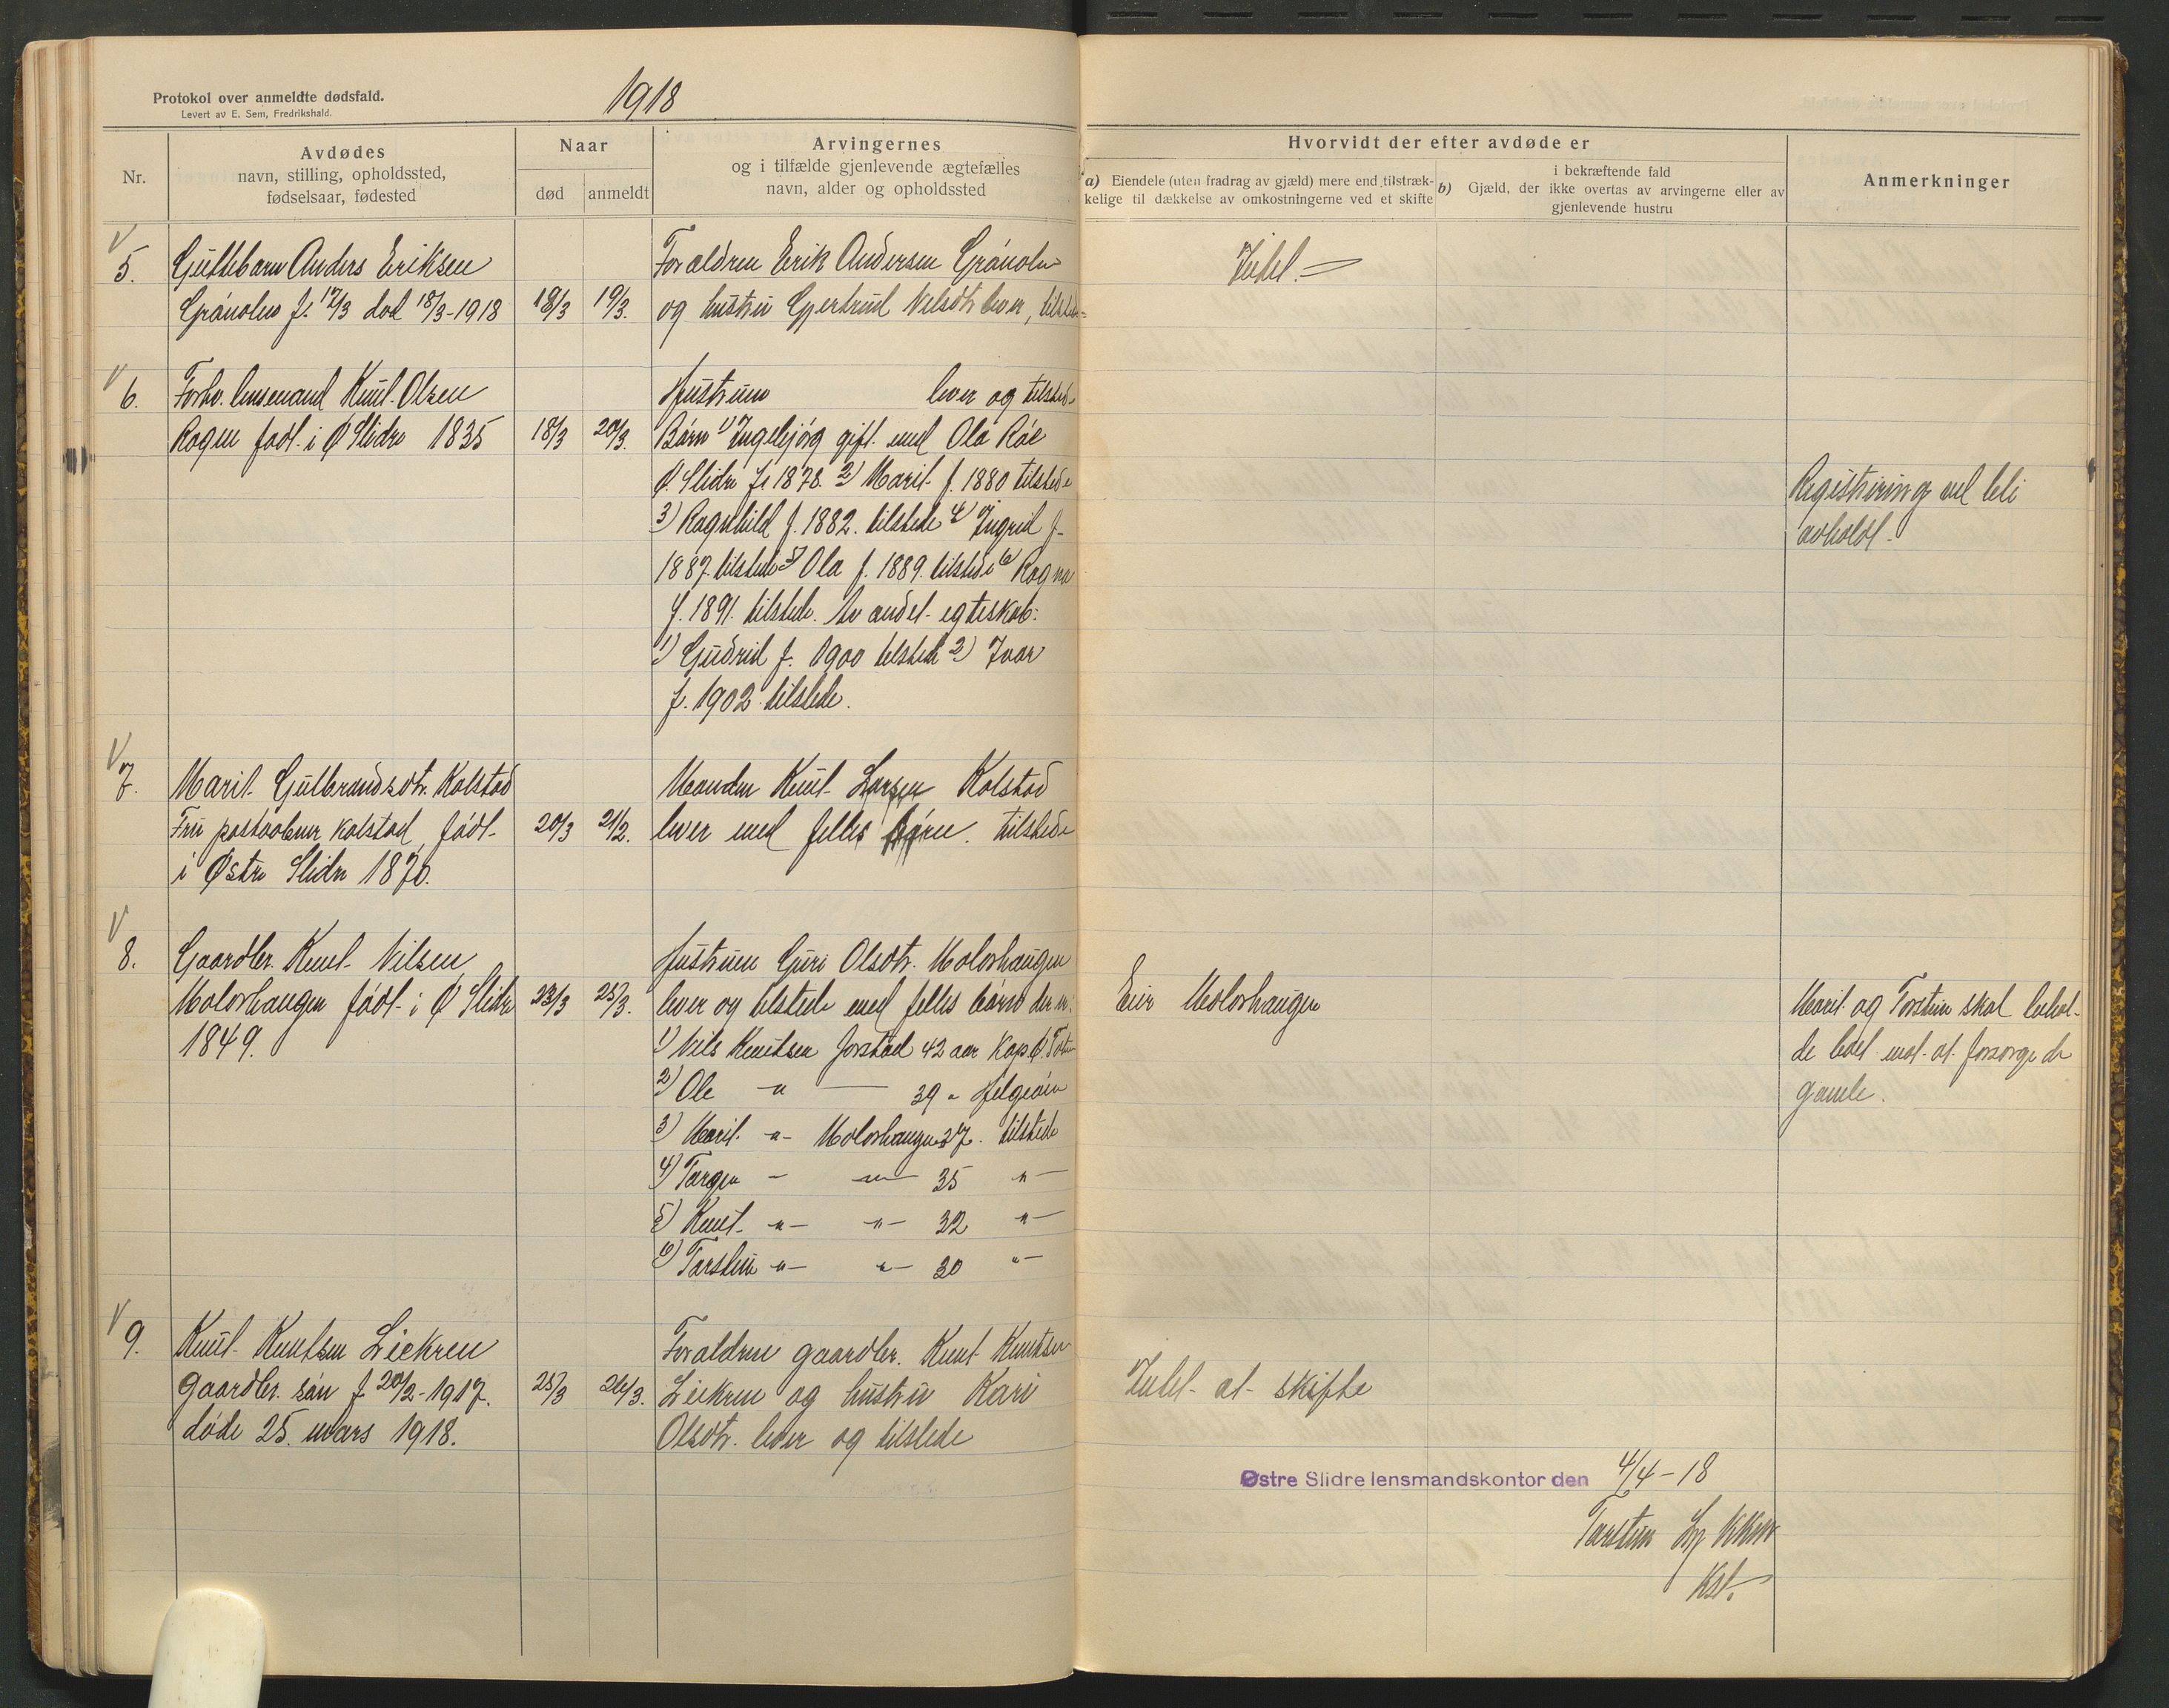 Protokol over anmeldte dødsfald.
Levert av E. Sem, Fredrikshald.
1918
Nr.
Avdødes
navn, stilling, opholdssted,
fødselsaar, fødested
Naar
død
anmeldt
Arvingernes
og i tilfælde gjenlevende ægtefælles
navn, alder og opholdssted
Hvorvidt der efter avdøde er
a) Eiendele (uten fradrag av gjæld) mere end tilstræk-
kelige til dækkelse av omkostningerne ved et skifte
i bekræftende fald
b) Gjæld, der ikke overtas av arvingerne eller av
gjenlevende hustru
Anmerkninger
5. Guttebarn Anders Eriksen
Grånolen f. 17/3 død 18/3-1918 18/3 19/3.
Forældren Erik Andersen Grånolen
og hustru Gjertrud Nilsdtr lever,
Intet.
6. Forhv. lensmand Knut Olsen
Rogne født i Ø Slidre 1835 18/3 20/3.
Hustruen lever og tilsted.
Børn 1) Ingebjørg gift med Ola Röe
Ø. Slidre f. 1878. 2) Marit f. 1880 tilstede
3) Ragnhild f. 1882. tilstede 4) Ingrid f.
1887. tilstede 5) Ola f. 1889. tilstede 6) Ragna
f. 1891. tilstede. Av andet egteskab:
1) Gudrid f. 1900 tilstede 2) Ivar
f. 1902 tilstede.
Registrering vil bli
avholdt.
7. Marit Gulbrandsdtr. Kolstad
Fru postaabner Kolstad, født
i Østre Slidre 1870. 20/3 21/2.
Manden Knut Larsen Kolstad
lever med felles børn. tilstede
8. Gaardbr. Knut Nilsen
Molovhaugen født i Ø Slidre 23/3 25/3.
1849.
Hustruen Guri Olsdtr. Molovhaugen
lever og tilstede med felles børn
1) Nils Knutsen Jorstad 42 aar Kap Ø. Toten
2) Ole -"- 39 " Helgeöen
3) Marit -"- Molovhaugen 37. tilstede
4) Torger - -"- 35 "-
5) Knut -"- -"- 32 "-
6) Torstein -"- -"- 30 "-
Eier Molovhaugen
Marit og Torstein skal behol-
de boet mot at forsørge de
gamle.
9. Knut Knutsen Liekren
gaardbr. søn f. 20/2-1917. 25/3 26/3.
døde 25. mars 1918.
Forældrene gaardbr. Knut Knutsen
Liekren og hustru Kari
Olsdtr. lever og tilstede
Intet at skifte
Østre Slidre lensmandskontor den 4/4-18
Torstein
Kst.